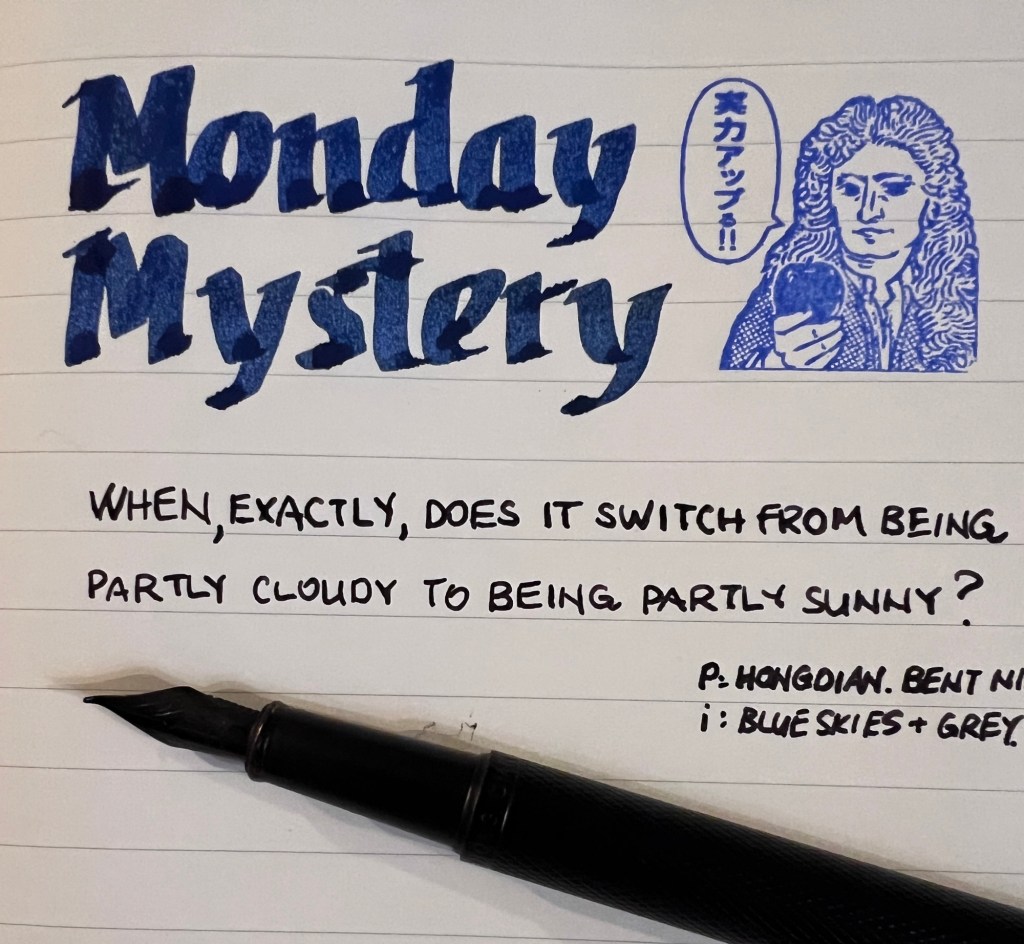 Monday
Mystery
実力アップ!!
WHEN, EXACTLY, DOES IT SWITCH FROM BEING
PARTLY CLOUDY TO BEING PARTLY SUNNY?
P: HONGDIAN. BENT NI
i: BLUE SKIES + GREY